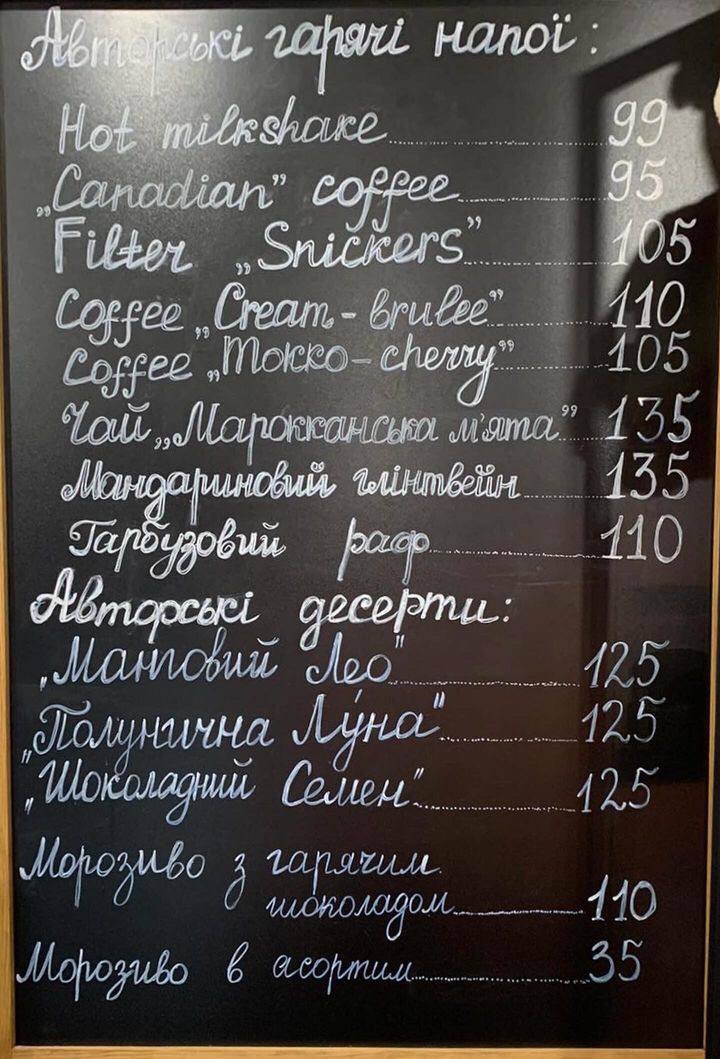 Авторські гарячі напої:
Hot milkshake 99
„Canadian" coffee 95
Filter „Snickers" 105
Coffee „Cream-brulee" 110
Coffee „Mokko-cherry" 105
Чай „Марокканська м'ята" 135
Мандариновий глінтвейн 135
Гарбузовий раф 110
Авторські десерти:
„Манговий Лео" 125
„Полунична Лу́на" 125
„Шоколадний Семен" 125
Морозиво з гарячим
шоколадом 110
Морозиво в асортим. 35